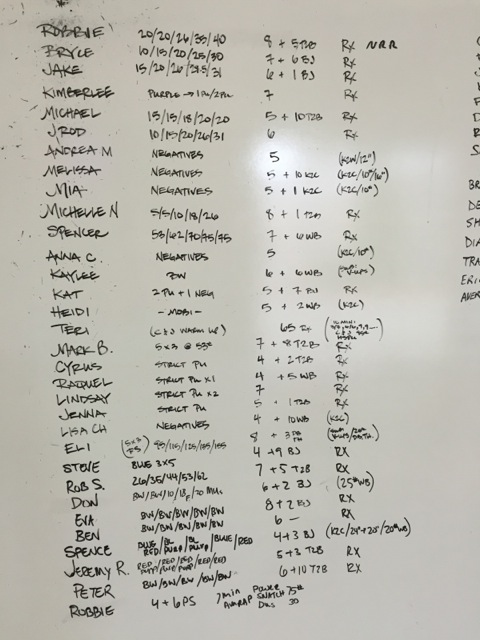 ROBBIE 20/20/26/35/40 8 + 5 T2B RX NRR
BRYCE 10/15/20/25/30 7 + 6 BJ RX
JAKE 15/20/26/28.5/31 6 + 1 BJ RX
KIMBERLEE PURPLE → 1 PU/2PU 7 RX
MICHAEL 15/15/18/20/20 5 + 10 T2B RX
JROD 10/15/20/26/31 6 RX
ANDREA M NEGATIVES 5 (K2W/12")
MELISSA NEGATIVES 5 + 10 K2C (K2C/10#/16")
MIA NEGATIVES 5 + 1 K2C (K2C/10#)
MICHELLE N 5/5/10/18/26 8 + 1 T2B RX
SPENCER 53/62/70/75/75 7 + 6 WB RX
ANNA C. NEGATIVES 5 (K2C/10#)
KAYLEE BW 6 + 6 WB
KAT 2 PU + 1 NEG 5 + 7 BJ RX
HEIDI - MOBI - 5 + 2 WB (K2C)
TERI (C & J WARM UP) 65 RX
MARK B. 5 x 3 @ 53# 7 + 8 T2B RX
CYRUS STRICT PU 4 + 2 T2B RX
RAQUEL STRICT PU x1 4 + 5 WB RX
LINDSAY STRICT PU x2 7 RX
JENNA STRICT PU 5 + 1 T2B RX
LISA CH NEGATIVES 4 + 10 WB (K2C)
ELI (5x3 FS) 95/115/125/135/155 8 + 3
STEVE BLUE 3x5 4 + 9 BJ RX
ROB S. 26/35/44/53/62 7 + 5 T2B RX
DON BW/BW/10/18 6 + 2 BJ (25# WB)
EVA BW/BW/BW/BW/BW 8 + 2 BJ RX
BEN BW/BW/BW/BW/BW 6 — RX
SPENCE 4 + 3 BJ (K2C/24"+20"/20# WB)
JEREMY R. 5 + 3 T2B RX
PETER BW/BW/BW/BW/BW 6 + 10 T2B RX
ROBBIE 4 + 6 PS 7 min AMRAP POWER SNATCH 75# DUS 30